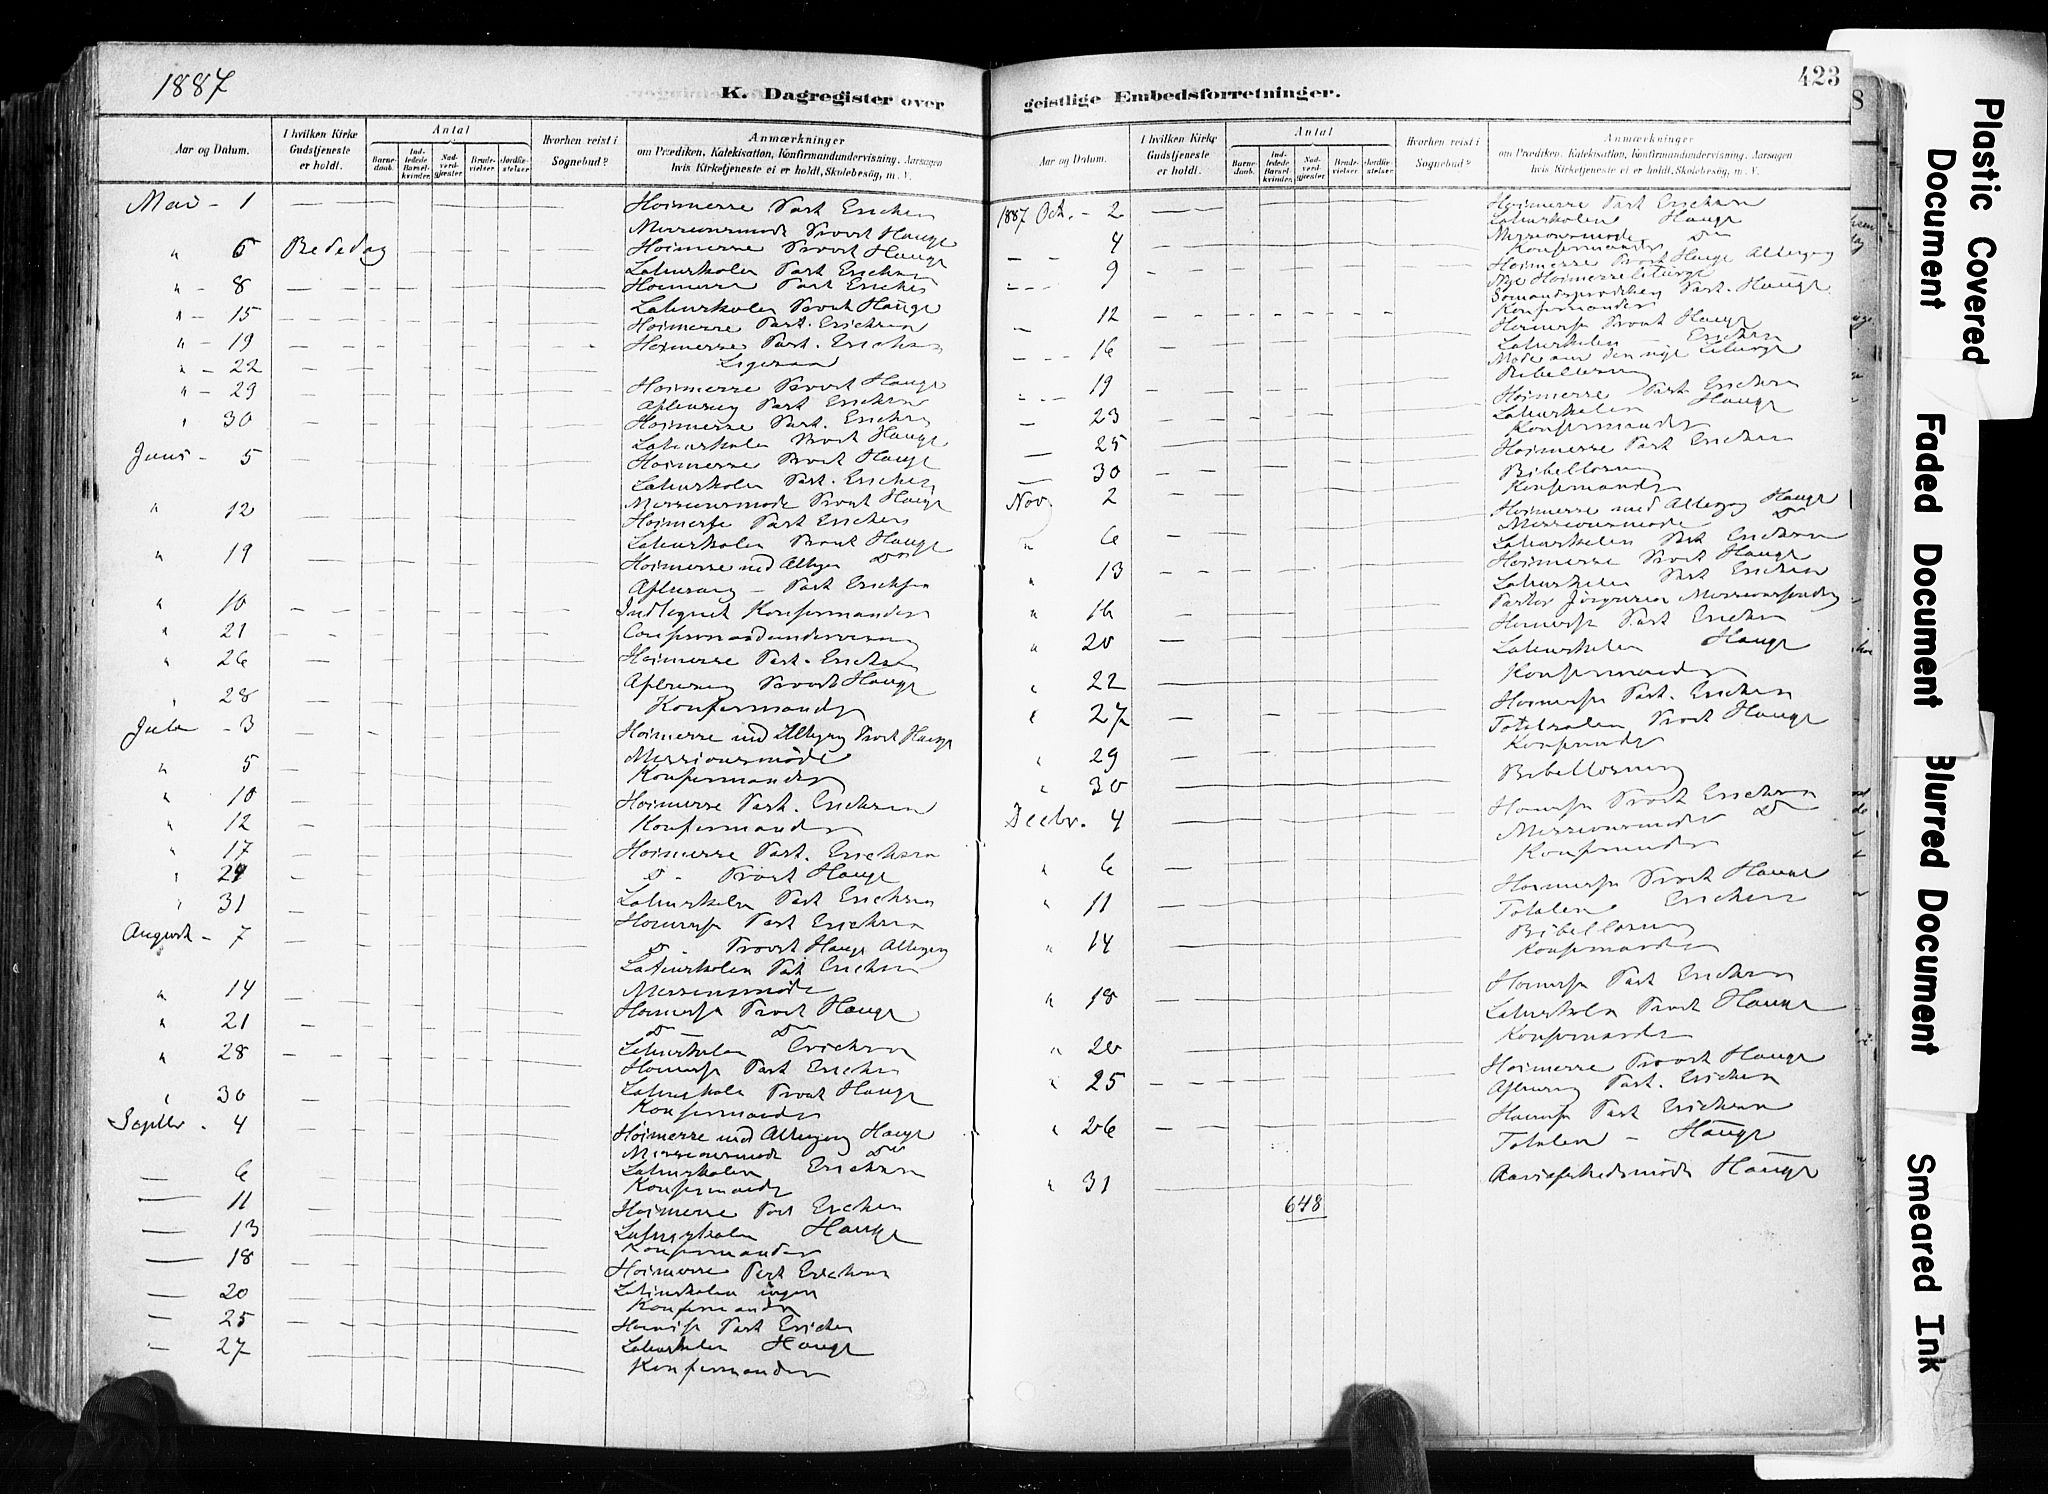 1887
K. Dagregister over
Aar og Datum.
I hvilken Kirke Gudstjeneste er holdt.
Antal
Barnedaab.
Indledede Barselkvinder.
Nadverdgjæster
Brudevielser
Jordfæstelser
Hvorhen reist i Sognebud?
Anmærkninger
om Prædiken, Katekisation, Konfirmandundervisning, Aarsagen
hvis Kirketjeneste ei er holdt, Skolebesøg, m. V.
Mai - 1 Høimesse Past Erichsen
Missionsmøde Provst Hauge
" 6 Bededag Høimesse Provst Hauge
Latinskolen Past Erichsen
" - 8 Høimesse Past Erichsen
Latinskolen Provst Hauge
" - 15 Høimesse Past. Erichsen
" - 19 Høimesse Past. Erichsen
" - 22 Ligesaa
" - 29 Høimesse Provst Hauge
Aftensang Past Erichsen
" 30 Høimesse Past. Erichsen
Latinskolen Provst Hauge
Juni - 5 Høimesse Provst Hauge
Latinskolen Past. Erichsen
Missionsmøde Provst Hauge
" 12 Høimesse Past Erichsen
Latinskolen Provst Hauge
" 19 Høimesse med Altergn Do
Aftensang - Past Erichsen
" 10 Indtegnet Konfirmander
" 21 Confirmandundervisning
" 26 Høimesse Past. Erichsen
Aftensang Provst Hauge
" 28 Konfirmander
Juli - 3 Høimesse med Altergng Provst Hauge
Missionsmøde
" 5 Konfirmander
" 10 Høimesse Past. Erichsen
" 12 Konfirmander
" 17 Høimesse Past. Erichsen
" 24 Do - Provst Hauge
" 31 Latinskolen Past Erichsen
Høimesse Past Erichsen
August - 7 Do - Provst Hauge Altergng
Latinskolen Past Erichsen
Missionsmøde
" 14 Høimesse Provst Hauge
" 21 Do Do
Latinskolen Erichsen
" 28 Høimesse Past Erichsen
Latinskole Provst Hauge
" 30 Konfirmander
Septbr. 4 Høimesse med Altergng Hauge
Missionsmøde Do
Latinskolen Erichsen
— 6 Konfirmander
— 11 Høimesse Past Erichsen
Latinskolen Hauge
— 13 Konfirmander
— 18 Høimesse Past Erichsen
Latinskolen ingen
— 20 Konfirmander
— 25 Høimesse Past Erichsen
Latinskolen Hauge
— 27 Konfirmander
423
geistlige Embedsforretninger.
Aar og Datum.
I hvilken Kirke Gudstjeneste er holdt.
Antal
Barnedaab.
Indledede Barselkvinder.
Nadverdgjæster
Brudevielser
Jordfæstelser
Hvorhen reist i Sognebud?
Anmærkninger
om Prædiken, Katekisation, Konfirmandundervisning, Aarsagen
hvis Kirketjeneste ei er holdt, Skolebesøg, m. V.
1887 Oct. - 2 Høimesse Past Erichsen
Latinskolen Hauge
Missionsmøde Do
— 4 Konfirmander
— 9 Høimesse Provst Hauge Altergng
Nye Høimesseliturgi
Past. Hauge
12 Konfirmander
— 16 Høimesse Provst Hauge
Latinskolen — Erichsen
Møde om den nye Liturgi
19 Bibellæsning
— 23 Høimesse Past Erichsen
Latinskolen Hauge
— 25 Konfirmander
— 30 Høimesse Past Erichsen
Nov 2 Bibellæsning
Konfirmander
" 6 Høimesse med Altergng Hauge
Missionsmøde Do
Latinskolen Past Erichsen
" 13 Høimesse Provst Hauge
Latinskolen Past Erichsen
" 16 Pastor Jörgensen
" 20 Høimesse Past Erichsen
Latinskolen Hauge
" 22 Konfirmander
" 27 Høimesse Past. Erichsen
Provst Hauge
" 29 Konfirmander
" 30 Bibellæsning
Decbr. 4 Høimesse Provst Erichsen
Missionsmøde Do
" 6 Konfirmander
" 11 Høimesse Provst Hauge
Erichsen
" 14 Bibellæsning
Konfirmander
" 18 Høimesse Past Erichsen
Latinskolen Provst Hauge
" 20 Konfirmander
" 25 Høimesse Provst Hauge
Aftensang Past. Erichsen
" 26 Høimesse Past Erichsen
— Hauge
" 31 Hauge
648
Plastic Covered Document
Faded Document
Blurred Document
Smeared Ink